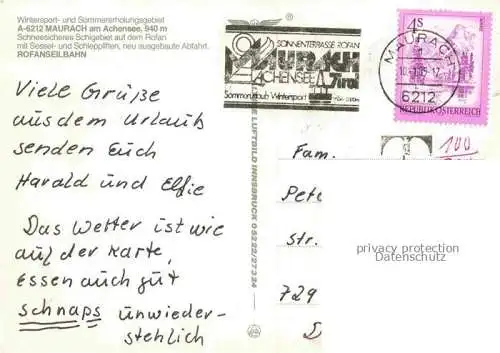 Wintersport- und Sommererholungsgebiet
A-6212 MAURACH am Achensee, 940 m
Schneesicheres Schigebiet auf dem Rofan
mit Sessel- und Schleppliften, neu ausgebaute Abfahrt.
ROFANSEILBAHN
Viele Grüße
aus dem Urlaub
senden Euch
Harald und Elfie
Das Wetter ist wie
auf der Karte,
Essen auch gut
schnaps unwieder-
stehlich
LUFTBILD INNSBRUCK 05222/27324
SONNENTERRASSE ROFAN
MAURACH
ACHENSEE Tirol
Sommerurlaub Wintersport
MAURACH
6212
4 S
REPUBLIK ÖSTERREICH
100
Fam.
Pete
Str.
729
privacy protection
Datenschutz